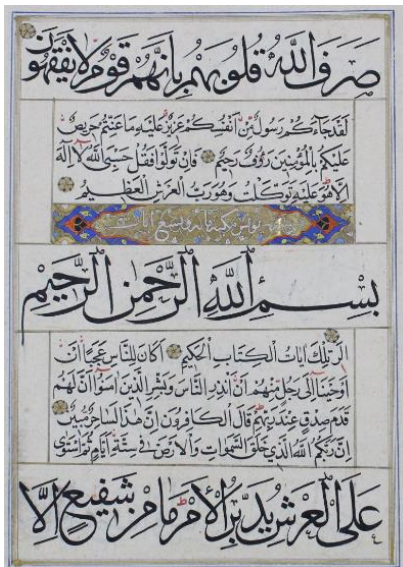 صَرَفَ اللّٰهُ قُلُوبَهُمْ بِأَنَّهُمْ قَوْمٌ لَا يَفْقَهُونَ
لَقَدْ جَاءَكُمْ رَسُولٌ مِنْ أَنْفُسِكُمْ عَزِيزٌ عَلَيْهِ مَا عَنِتُّمْ حَرِيصٌ
عَلَيْكُمْ بِالْمُؤْمِنِينَ رَؤُفٌ رَحِيمٌ فَإِنْ تَوَلَّوْا فَقُلْ حَسْبِيَ اللّٰهُ لَا إِلٰهَ
إِلَّا هُوَ عَلَيْهِ تَوَكَّلْتُ وَهُوَ رَبُّ الْعَرْشِ الْعَظِيمِ
يونس مائة وتسع آيات
بِسْمِ اللّٰهِ الرَّحْمٰنِ الرَّحِيمِ
الر تِلْكَ اٰيَاتُ الْكِتَابِ الْحَكِيمِ أَكَانَ لِلنَّاسِ عَجَبًا أَنْ
أَوْحَيْنَا إِلَى رَجُلٍ مِنْهُمْ أَنْ أَنْذِرِ النَّاسَ وَبَشِّرِ الَّذِينَ اٰمَنُوا أَنَّ لَهُمْ
قَدَمَ صِدْقٍ عِنْدَ رَبِّهِمْ قَالَ الْكَافِرُونَ إِنَّ هٰذَا لَسَاحِرٌ مُبِينٌ
إِنَّ رَبَّكُمُ اللّٰهُ الَّذِي خَلَقَ السَّمٰوَاتِ وَالْأَرْضَ فِي سِتَّةِ أَيَّامٍ ثُمَّ اسْتَوٰى
عَلَى الْعَرْشِ يُدَبِّرُ الْأَمْرَ مَا مِنْ شَفِيعٍ إِلَّا